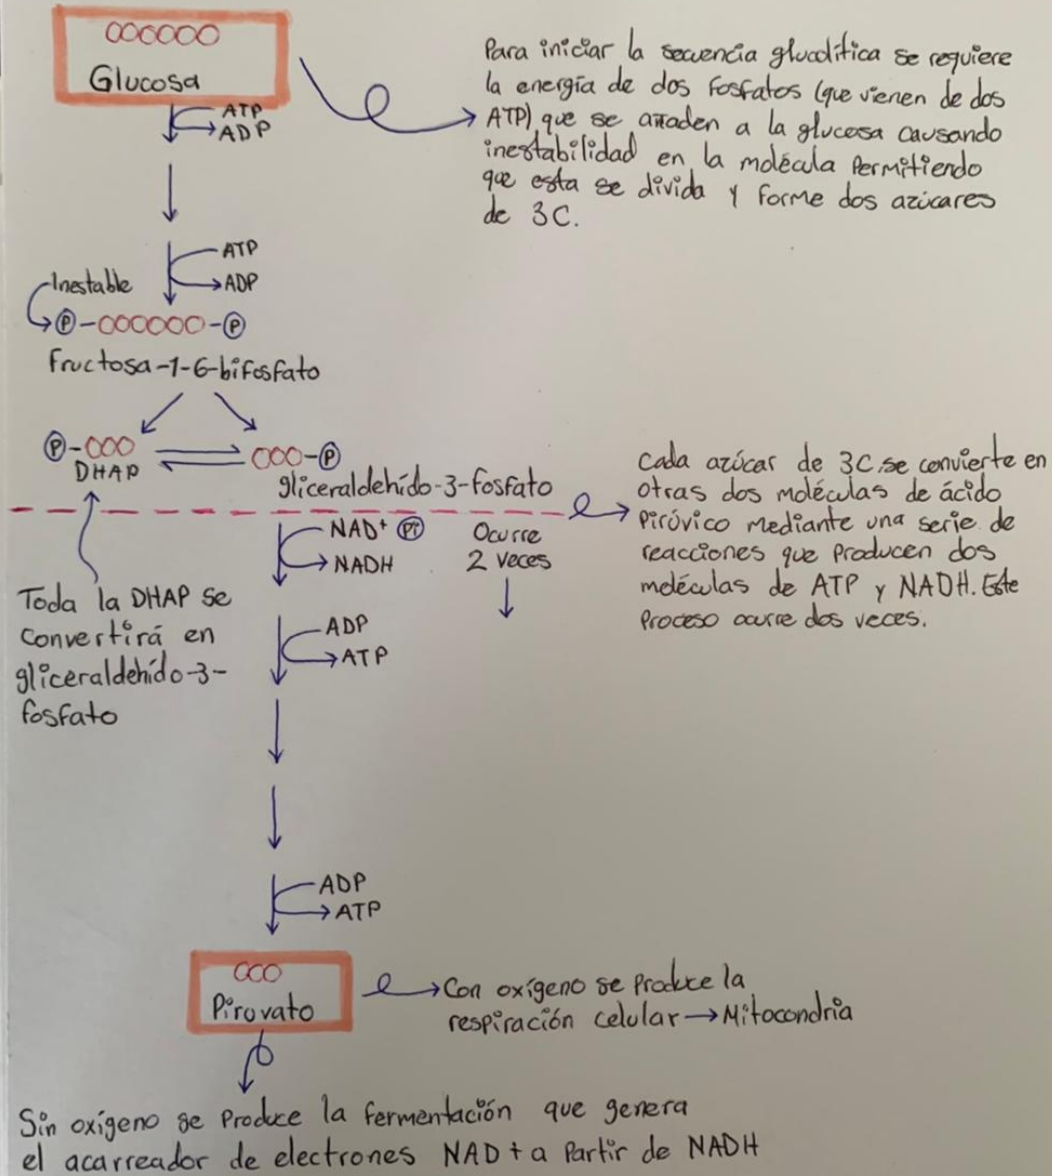 Glucosa
ATP
ADP
Para iniciar la secuencia glucolítica se requiere
la energía de dos fosfatos (que vienen de dos
ATP) que se añaden a la glucosa causando
inestabilidad en la molécula permitiendo
que esta se divida y forme dos azúcares
de 3C.
ATP
ADP
Inestable
P P
fructosa-1-6-bifosfato
P
DHAP
P
gliceraldehído-3-fosfato
Cada azúcar de 3C se convierte en
otras dos moléculas de ácido
Pirúvico mediante una serie de
reacciones que producen dos
moléculas de ATP y NADH. Este
Proceso ocurre dos veces.
NAD+ Pi
NADH
Ocurre
2 veces
Toda la DHAP se
convertirá en
gliceraldehído-3-
fosfato
ADP
ATP
ADP
ATP
Pirovato
Con oxígeno se produce la
respiración celular → Mitocondria
Sin oxígeno se produce la fermentación que genera
el acarreador de electrones NAD+ a partir de NADH